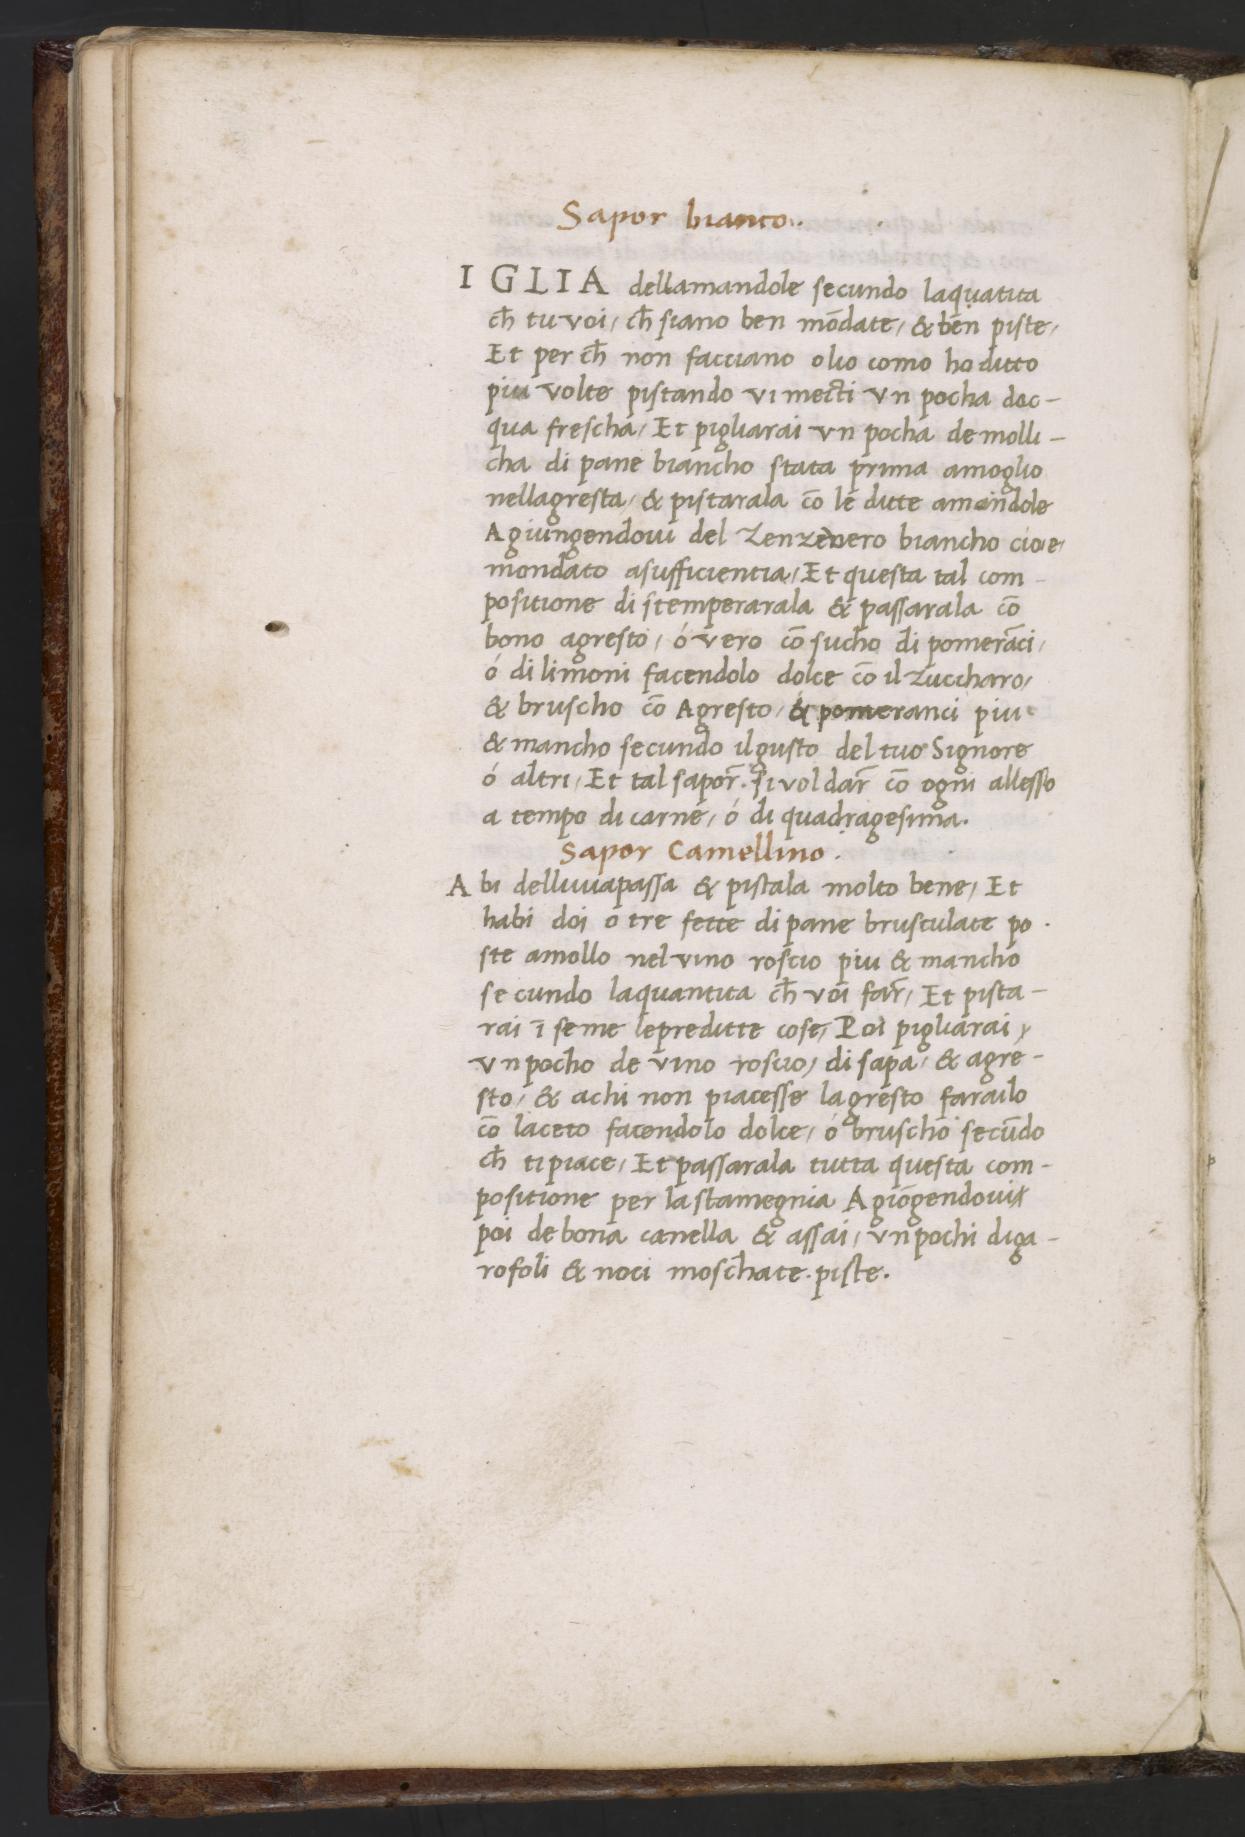 Sapor bianco.
I GLIA dellamandole secundo laquãtita
ch̄ tu voi, ch̄ siano ben mōdate, & ben piste,
Et per ch̄ non facciano olio como ho ditto
piu volte pistando vi mecti vn pocha dac-
qua frescha, Et pigliarai vn pocha de molli-
cha di pane biancho stata prima amoglio
nellagresta, & pistarala cō le ditte amandole
Agiungendoui del Zenzevero biancho cioe,
mondato asufficientia, Et questa tal com-
positione distemperarala & passarala cō
bono agresto, ó vero cō sucho di pomerāci,
ó di limoni facendolo dolce cō il zuccharo,
& bruscho cō Agresto, & pomeranci piu
& mancho secundo il gusto del tuo Signore
ó altri, Et tal sapor̄. si vol dar̄ cō ogni allesso
a tempo di carne, ó di quadragesima.
Sapor Camellino.
A bi delluuapassa & pistala molto bene, Et
habi doi o tre fette di pane brusculate po.
ste amollo nel vino roscio piu & mancho
secundo laquantita ch̄ voi far̄, Et pista-
rai ī seme lepreditte cose, Poi pigliarai
vn pocho de vino roscio, di sapa, & agre-
sto, & achi non piacesse lagresto farailo
cō laceto facendolo dolce, ó bruscho secūdo
ch̄ ti piace, Et passarala tutta questa com-
positione per la stamegnia Agiōgendoui
poi de bona canella & assai, vn pochi di ga-
rofoli & noci moschate. piste.